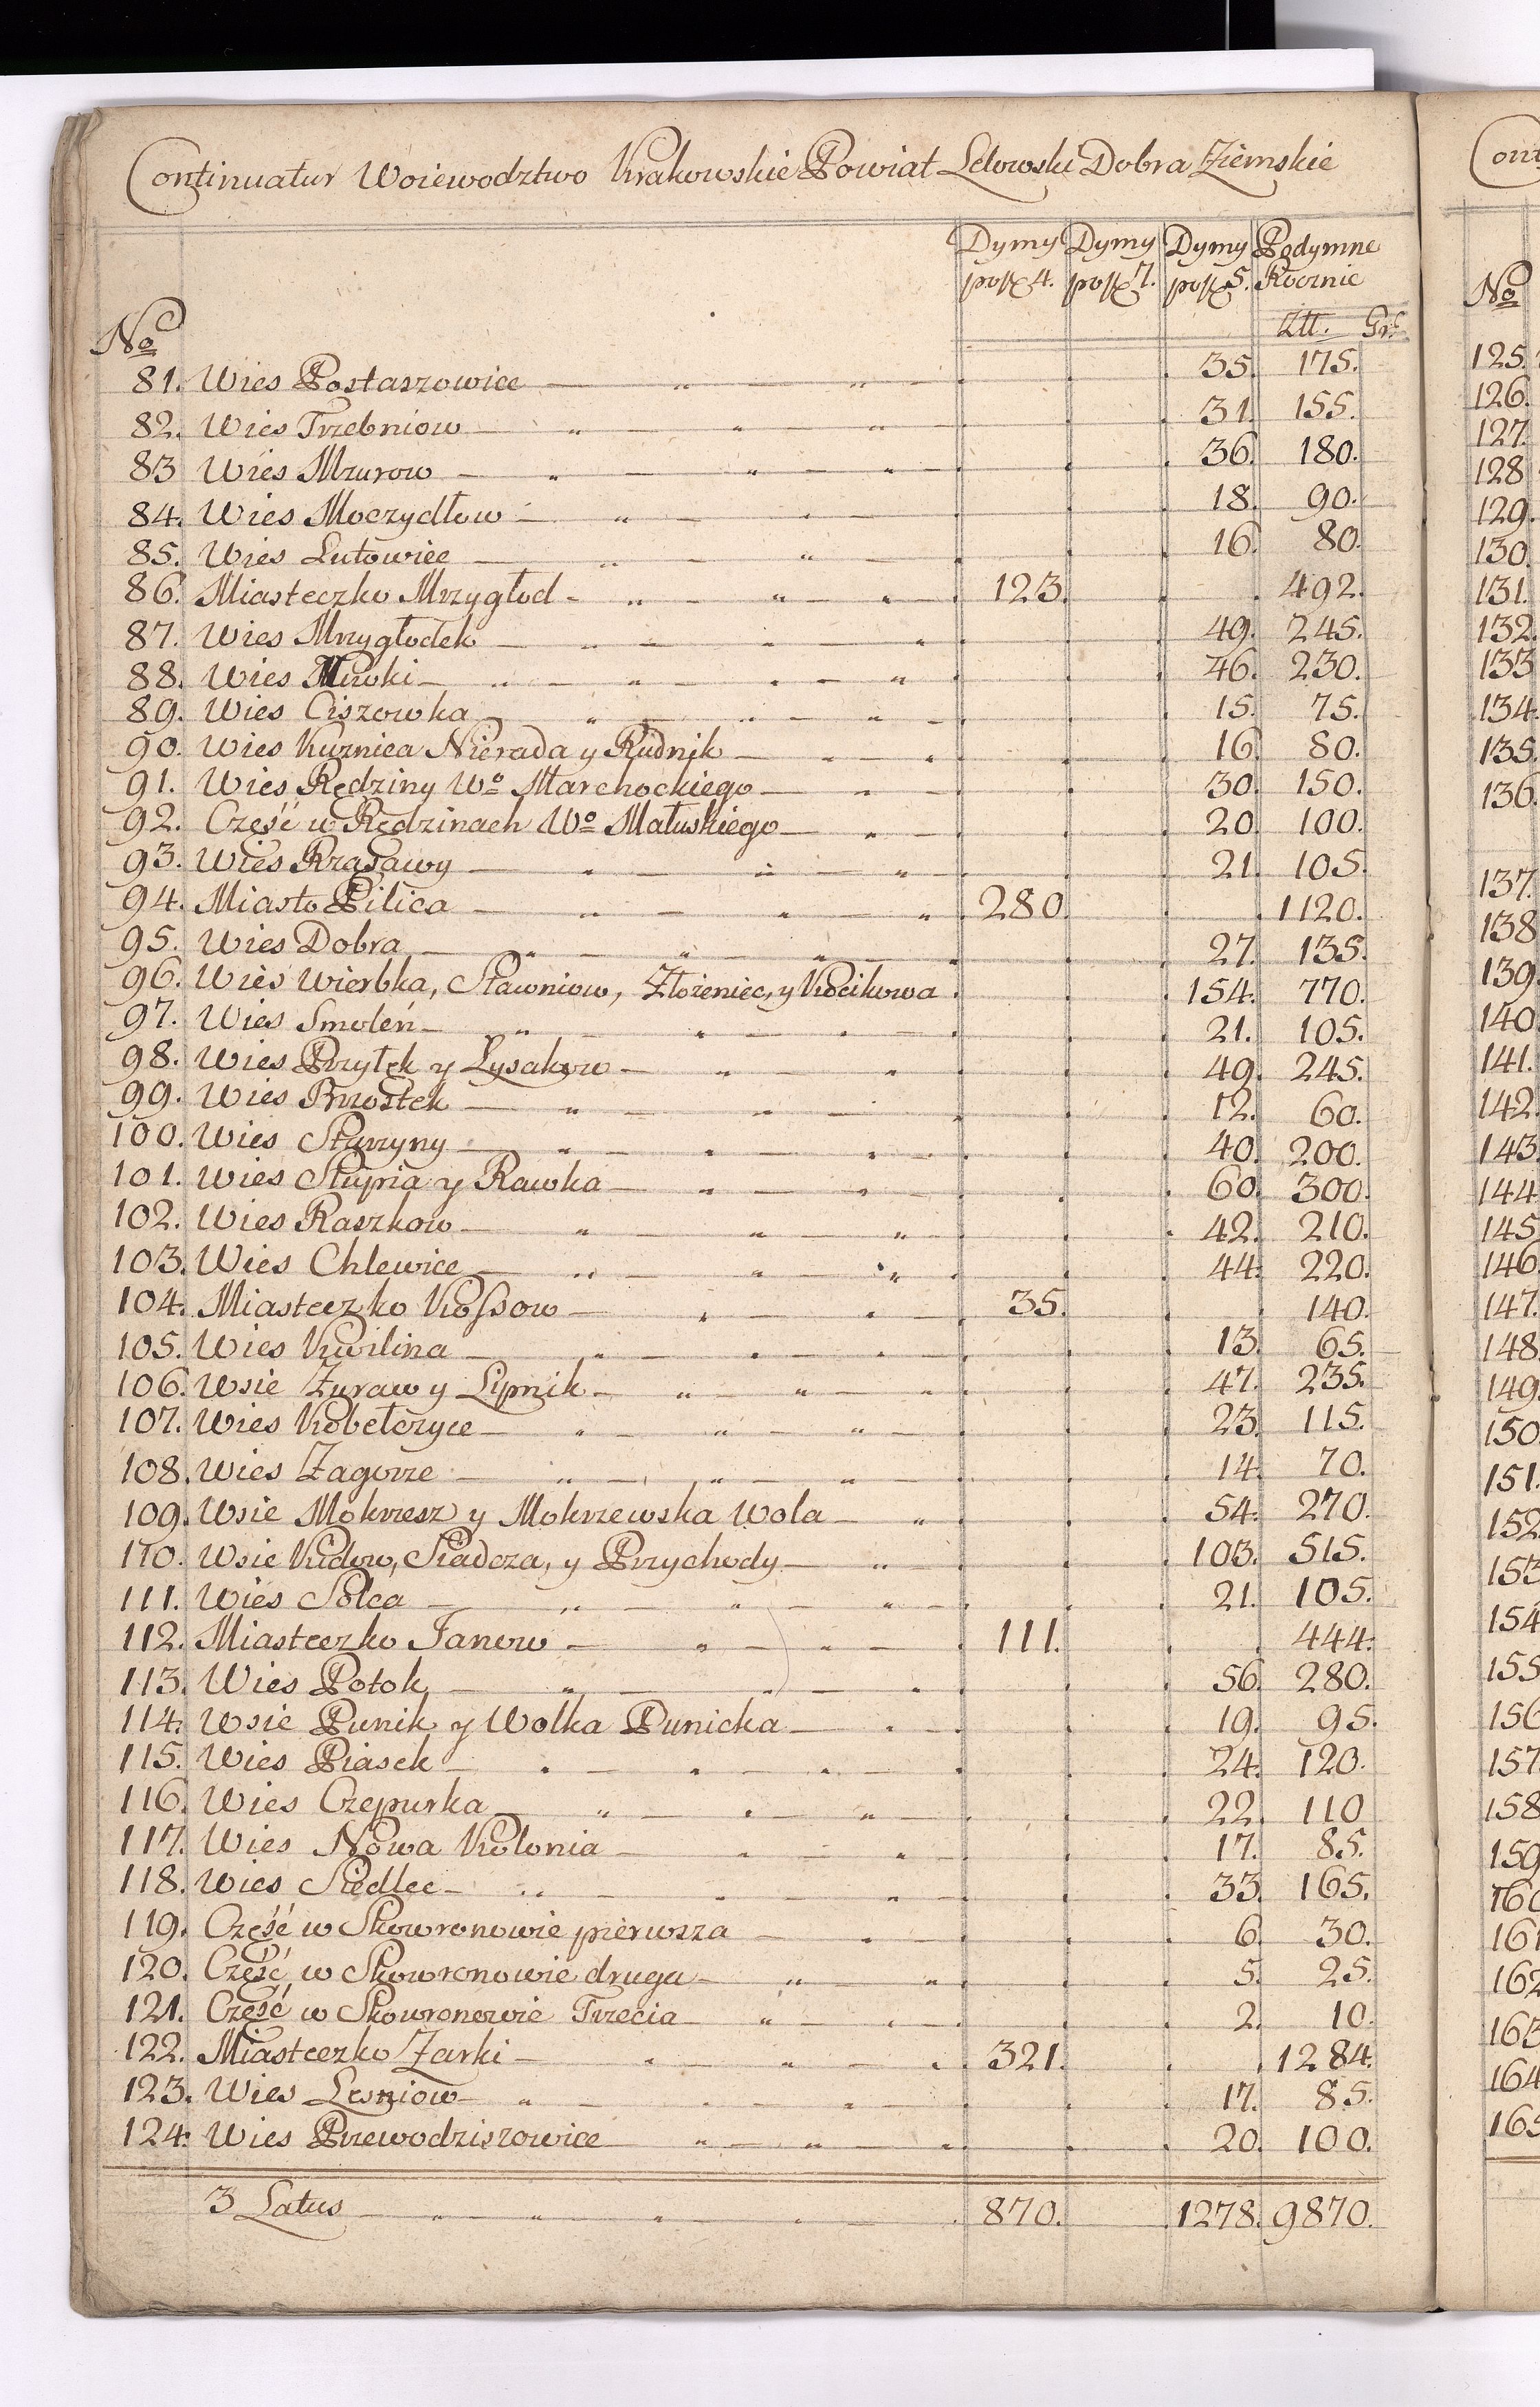 Continuatur Woiewodztwo Krakowskie Powiat Lelowski Dobra Ziemskie
Dymy Dymy Dymy Podymne
po fl 4. po fl 7. po fl 5. Rocznie
No Ztt. Gr.
81. Wies Postaszowice 35. 175.
82. Wies Trzebniow 31. 155.
83 Wies Mzurow 36. 180.
84. Wies Moczydłow 18. 90.
85. Wies Lutowiec 16. 80.
86. Miasteczko Mrzygłod 123. 492.
87. Wies Mrzygłodek 49. 245.
88. Wies 46. 230.
89. Wies Ciszowka 15. 75.
90. Wies Kuznica Nierada y Rudnik 16. 80.
91. Wies Rędziny Wo Marchockiego 30. 150.
92. Część w Rędzinach Wo Małuskiego 20. 100.
93. Wies Krasawy 21. 105.
94. Miasto Pilica 280. 1120.
95. Wies Dobra 27. 135.
96. Wies Wierbka, Sławniow, Złożeniec, y Kocikowa 154. 770.
97. Wies Smoleń 21. 105.
98. Wies Przyłęk y Łysakow 49. 245.
99. Wies Brzostek 12. 60.
100. Wies Starzyny 40. 200.
101. Wies Słupia y Rawka 60. 300.
102. Wies Raszkow 42. 210.
103. Wies Chlewice 44. 220.
104. Miasteczko Kossow 35. 140.
105. Wies Kwilina 13. 65.
106. Wsie Zuraw y Lipnik 47. 235.
107. Wies Kobełczyce 23. 115.
108. Wies Zagorze 14. 70.
109. Wsie Mokrzesz y Mokrzewska Wola 54. 270.
110. Wsie Kidow, Siadcza, y Przychody 103. 515.
111. Wies Solca 21. 105.
112. Miasteczko Janow 111. 444.
113. Wies Potok 56. 280.
114. Wsie Ponik y Wolka Ponicka 19. 95.
115. Wies Piasek 24. 120.
116. Wies Czepurka 22. 110
117. Wies Nowa Kolonia 17. 85.
118. Wies Siedlec 33. 165.
119. Część w Skowronowie pierwsza 6. 30.
120. Część w Skowronowie druga 5. 25.
121. Część w Skowronowie Trzecia 2. 10.
122. Miasteczko Zarki 321. 1284.
123. Wies Lesniow 17. 85.
124. Wies Przewodziszowice 20. 100.
3 Latus 870. 1278. 9870.
No
125.
126.
127.
128
129.
130.
131.
132.
133
134.
135.
136.
137.
138
139.
140
141.
142.
143.
144
145
146
147.
148
149.
150
151.
152
153
154
155
156
157.
158
159
160
161
162
163
164
165